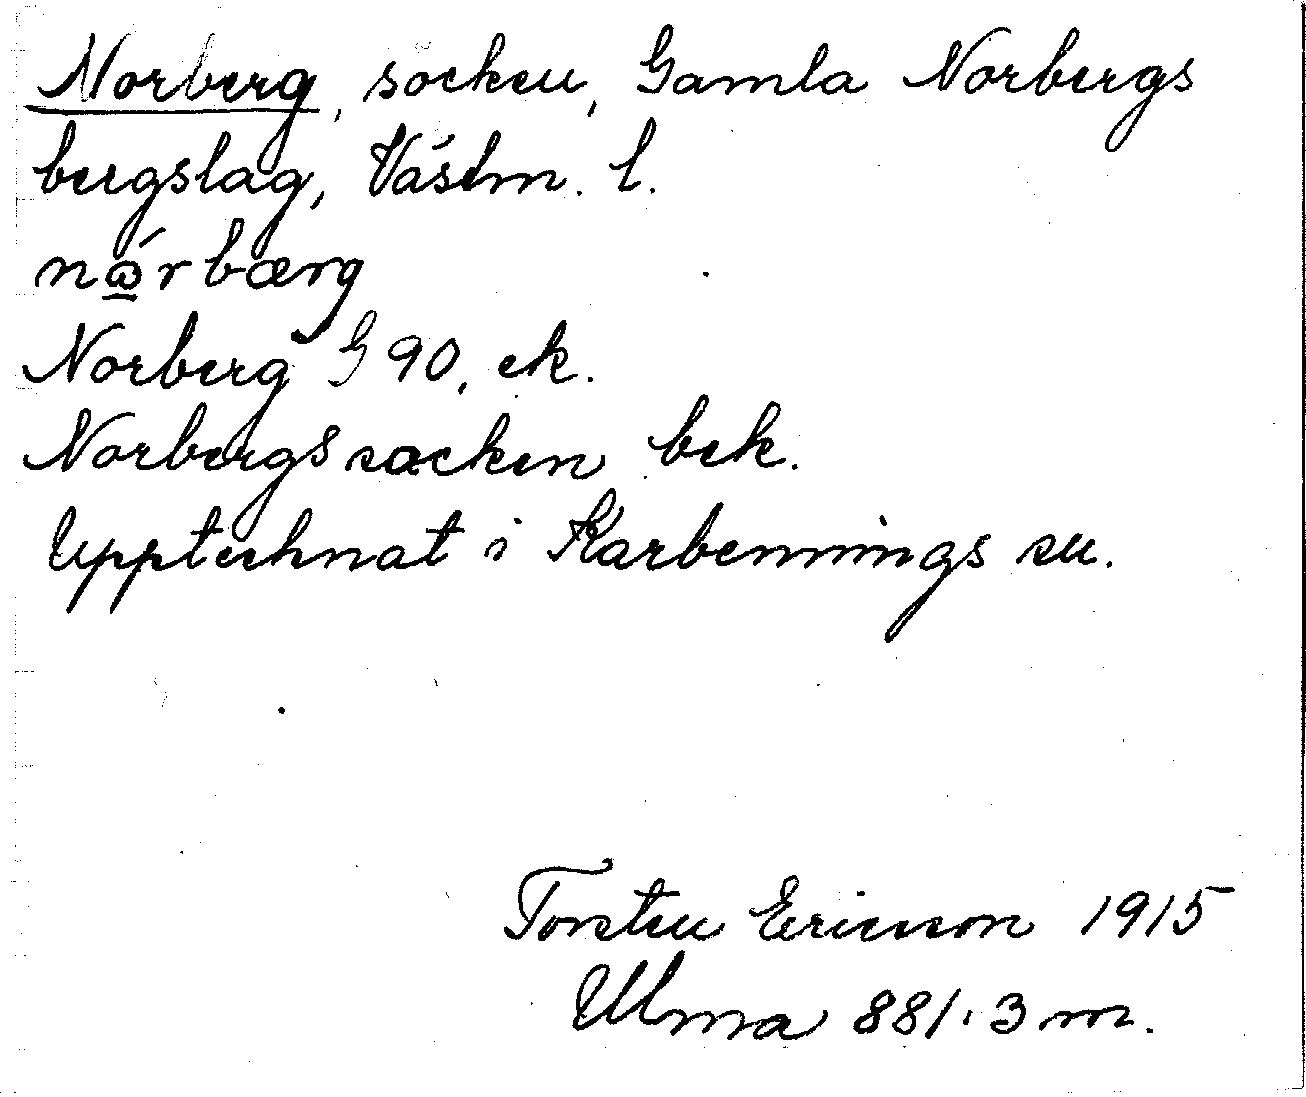 Norberg, socken, Gamla Norbergs
bergslag, Västm. l.
nώ̲rbærg
Norberg G 90, ek.
Norbergssocken bek.
Upptecknat i Karbennings sn.
Torsten Ericsson 1915
Ulma 881.3 m.